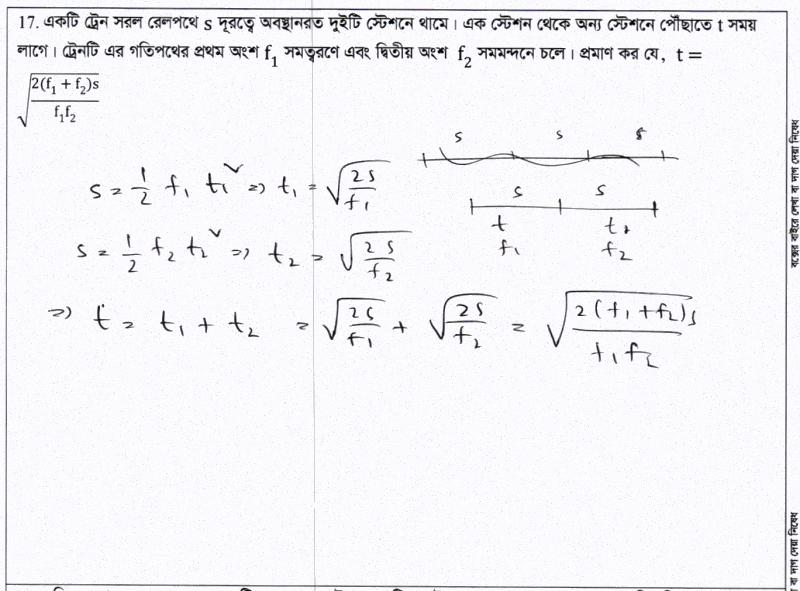 17. একটি ট্রেন সরল রেলপথে s দূরত্বে অবস্থানরত দুইটি স্টেশনে থামে। এক স্টেশন থেকে অন্য স্টেশনে পৌঁছাতে t সময়
লাগে। ট্রেনটি এর গতিপথের প্রথম অংশ f₁ সমত্বরণে এবং দ্বিতীয় অংশ f₂ সমমন্দনে চলে। প্রমাণ কর যে, t =
√(2(f₁ + f₂)s / f₁f₂)
s s s
s = 1/2 f₁ t₁² ⇒ t₁ = √(2s/f₁)
s s
t t₂
f₁ f₂
s = 1/2 f₂ t₂² ⇒ t₂ = √(2s/f₂)
⇒ t = t₁ + t₂ = √(2s/f₁) + √(2s/f₂) = √(2(f₁+f₂)s / f₁f₂)
বক্সের বাইরে লেখা বা দাগ দেয়া নিষেধ
বা দাগ দেয়া নিষেধ